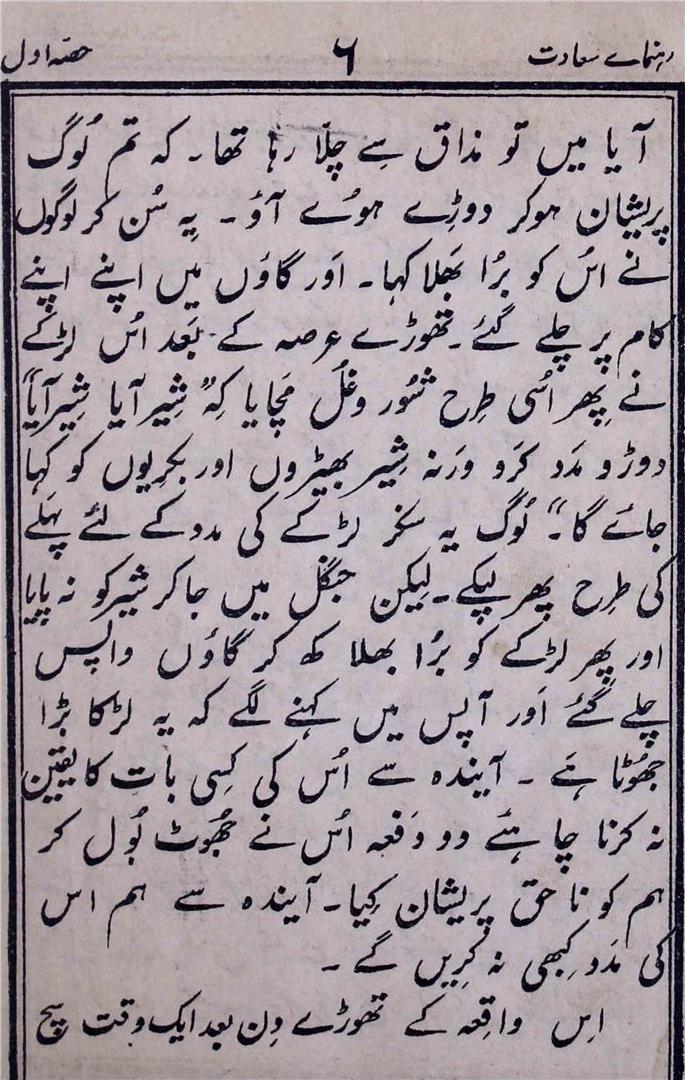 رہنمائے سعادت ۶ حصّہ اول
آیا میں تو مذاق سِے چِلّا رہا تھا۔ کہ تم لُوگ
پریشان ہوکر دوڑِے ہوئے آؤ۔ یِہ سُن کر لوگوں
نے اسُ کو برُا بھَلا کہا۔ اَور گاؤں میں اپنے اپنے
کام پر چلے گئے۔ تھوڑے عرصہ کے بَعد اسُ لڑکے
نے پِھر اسُی طِرح شوُر وغُل مَچایا کِہ "شِیر آیا شِیر آیا"
دوڑو مَدد کَرو وَرنہ شِیر بھیڑوں اور بکریوں کو کہا
جائے گا۔" لُوگ یہ سنکر لڑکے کی مدد کے لئے پہَلے
کی طِرح پھر لپکے۔ لِیکن جنگل میں جاکر شیر کو نہ پایا
اور پِھر لڑکے کو برُا بھلا کھ کر گاؤں واپس
چلے گئے اَور آپس میں کہنے لگے کہ یہ لڑکا بڑا
جھُوٹا ہَے۔ آیندہ سے اسُ کی کِسی بات کا یقین
نہ کرنا چاہئے دو دَفعہ اسُ نے جھُوٹ بُول کر
ہم کو ناحق پریشان کِیا۔ آیندہ سے ہم اس
کی مَدد کبھی نہ کریں گے۔
اِس واقِعہ کے تھوڑے دِن بعد ایک وقت سچ